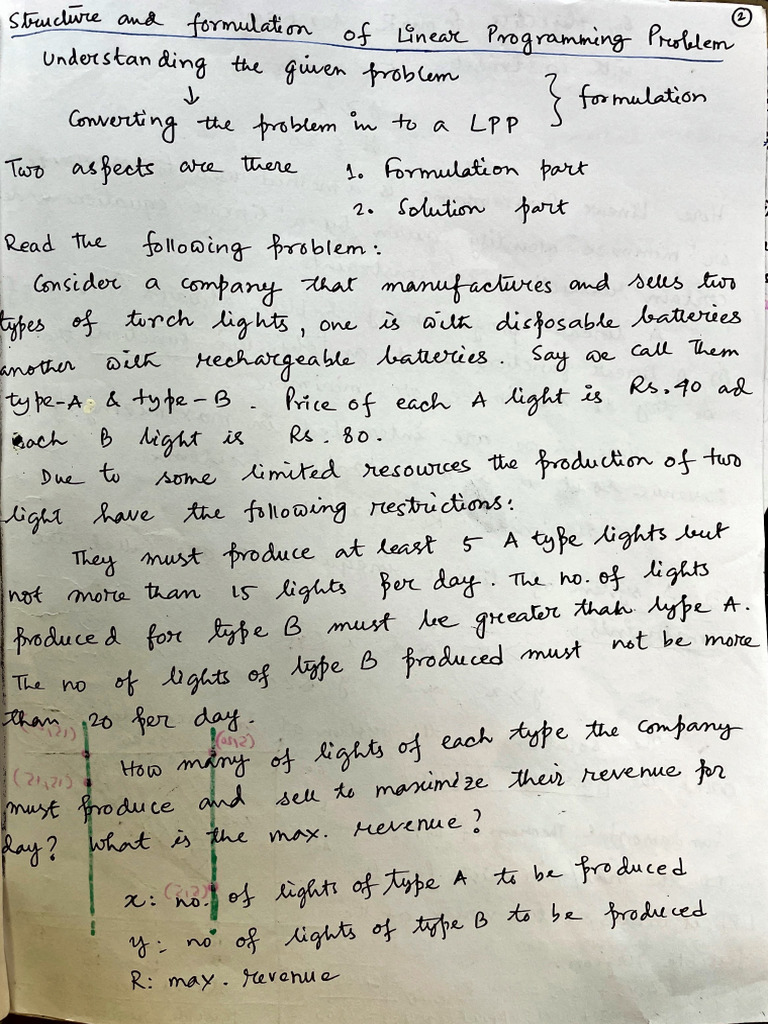 Structure and formulation of Linear Programming Problem
2
Understanding the given problem
↓
} formulation
Converting the problem in to a LPP
Two aspects are there 1. Formulation part
2. Solution part
Read the following problem:
Consider a company that manufactures and sells two
types of torch lights, one is with disposable batterees
another with rechargeable batteries. Say we call them
type-A & type-B. Price of each A light is Rs. 40 ad
each B light is Rs. 80.
Due to some limited resources the production of two
light have the following restrictions:
They must produce at least 5 A type lights but
not more than 15 lights per day. The no. of lights
produced for type B must be greater than type A.
The no of lights of type B produced must not be more
than 20 per day.
How many of lights of each type the company
must produce and sell to maximize their revenue for
day? What is the max. revenue?
x: no. of lights of type A to be produced
y: no of lights of type B to be produced
R: max. revenue